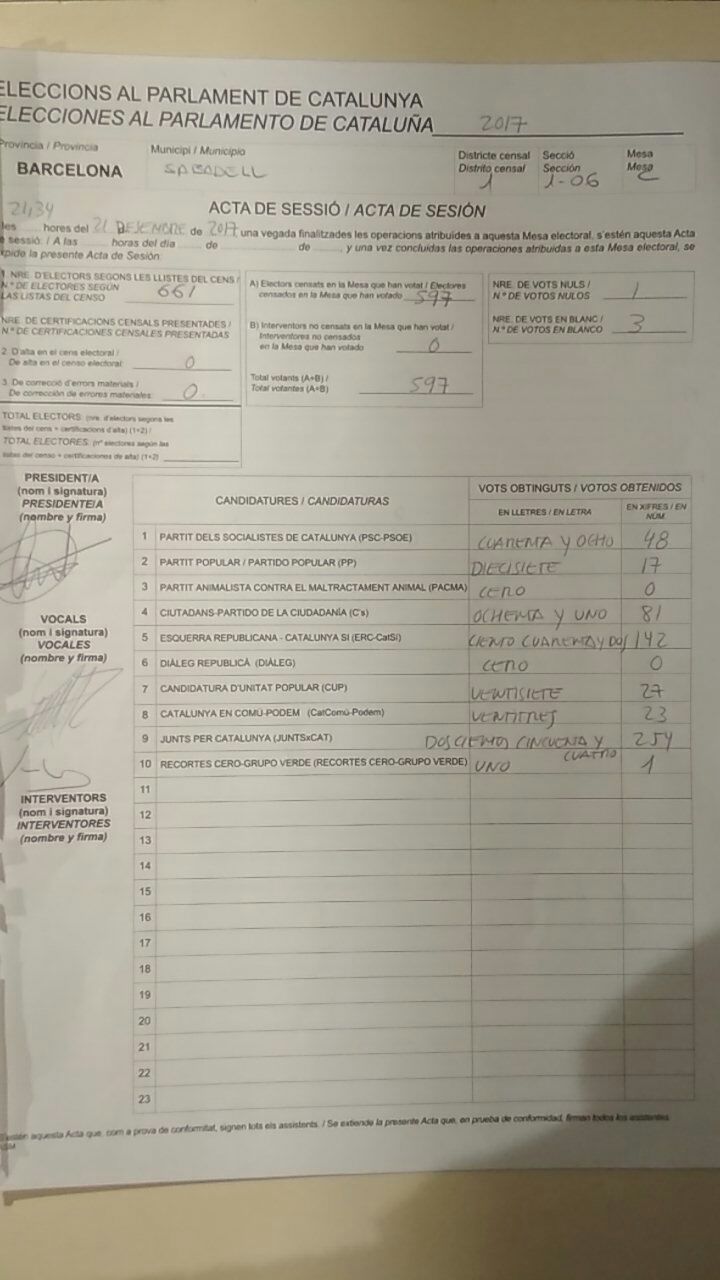 ELECCIONS AL PARLAMENT DE CATALUNYA
ELECCIONES AL PARLAMENTO DE CATALUÑA 2017
Provincia / Provincia
BARCELONA
Municipi / Municipio
SABADELL
Districte censal
Distrito censal
1
Secció
Sección
1-06
Mesa
Mesa
C
ACTA DE SESSIÓ / ACTA DE SESIÓN
21,34
les hores del 21 DE de 2017, una vegada finalitzades les operacions atribuïdes a aquesta Mesa electoral, s'estén aquesta Acta
e sessió: / A las horas del día de de , y una vez concluidas las operaciones atribuidas a esta Mesa electoral, se
xpide la presente Acta de Sesión:
1. NRE. D'ELECTORS SEGONS LES LLISTES DEL CENS /
N.º DE ELECTORES SEGÚN
LAS LISTAS DEL CENSO 661
NRE. DE CERTIFICACIONS CENSALS PRESENTADES /
N.º DE CERTIFICACIONES CENSALES PRESENTADAS
2. D'alta en el cens electoral /
De alta en el censo electoral: 0
3. De correcció d'errors materials /
De corrección de errores materiales: 0
TOTAL ELECTORS: (nre. d'electors segons les
llistes del cens + certificacions d'alta) (1+2) /
TOTAL ELECTORES: (nº electores según las
listas del censo + certificaciones de alta) (1+2)
A) Electors censats en la Mesa que han votat / Electores
censados en la Mesa que han votado 597
B) Interventors no censats en la Mesa que han votat /
Interventores no censados
en la Mesa que han votado 0
Total votants (A+B) /
Total votantes (A+B) 597
NRE. DE VOTS NULS /
N.º DE VOTOS NULOS 1
NRE. DE VOTS EN BLANC /
N.º DE VOTOS EN BLANCO 3
PRESIDENT/A
(nom i signatura)
PRESIDENTE/A
(nombre y firma)
VOCALS
(nom i signatura)
VOCALES
(nombre y firma)
INTERVENTORS
(nom i signatura)
INTERVENTORES
(nombre y firma)
CANDIDATURES / CANDIDATURAS
VOTS OBTINGUTS / VOTOS OBTENIDOS
EN LLETRES / EN LETRA
EN XIFRES / EN NÚM.
1 PARTIT DELS SOCIALISTES DE CATALUNYA (PSC-PSOE) CUARENTA Y OCHO 48
2 PARTIT POPULAR / PARTIDO POPULAR (PP) DIECISIETE 17
3 PARTIT ANIMALISTA CONTRA EL MALTRACTAMENT ANIMAL (PACMA) CERO 0
4 CIUTADANS-PARTIDO DE LA CIUDADANÍA (C's) OCHENTA Y UNO 81
5 ESQUERRA REPUBLICANA - CATALUNYA SI (ERC-CatSí) CIENTO CUARENTA Y DOS 142
6 DIÀLEG REPUBLICÀ (DIÀLEG) CERO 0
7 CANDIDATURA D'UNITAT POPULAR (CUP) VENTISIETE 27
8 CATALUNYA EN COMÚ-PODEM (CatComú-Podem) VENTITRES 23
9 JUNTS PER CATALUNYA (JUNTSxCAT) DOSCIENTOS CINCUENTA Y CUATRO 254
10 RECORTES CERO-GRUPO VERDE (RECORTES CERO-GRUPO VERDE) UNO 1
11
12
13
14
15
16
17
18
19
20
21
22
23
S'estén aquesta Acta que, com a prova de conformitat, signen tots els assistents. / Se extiende la presente Acta que, en prueba de conformidad, firman todos los asistentes.